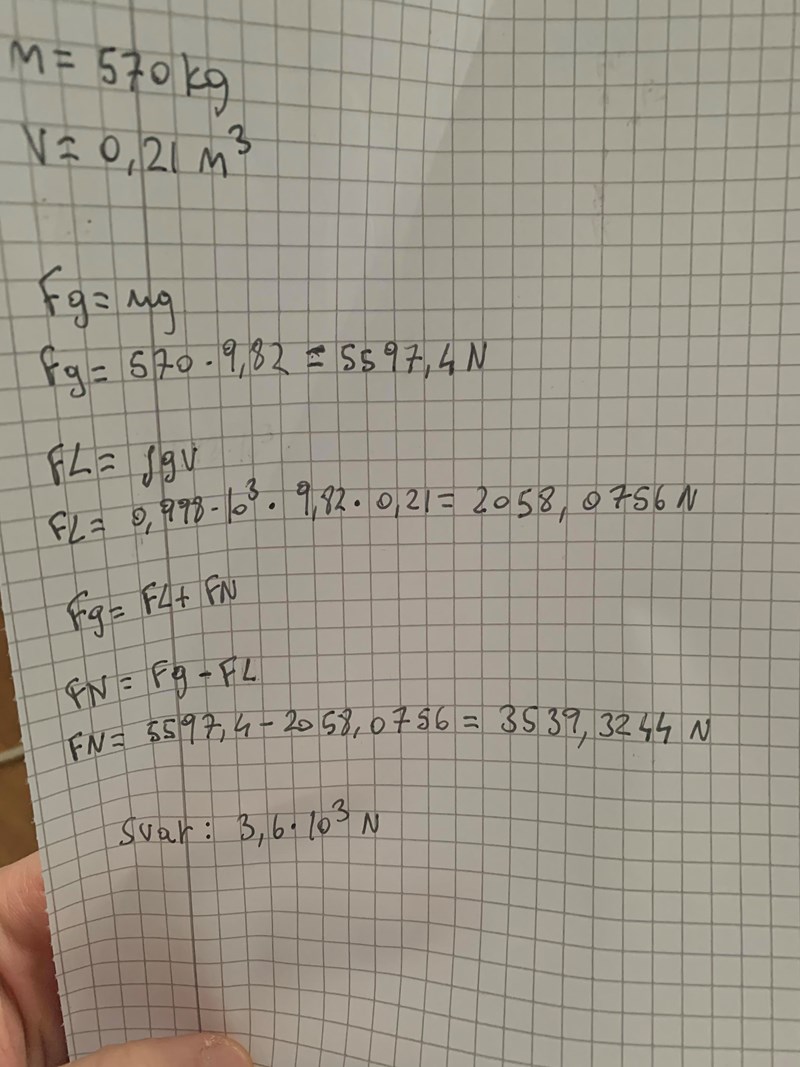 m = 570 kg
V = 0,21 m³
Fg = mg
Fg = 570 · 9,82 = 5597,4 N
FL = ρgV
FL = 0,998 · 10³ · 9,82 · 0,21 = 2058,0756 N
Fg = FL + FN
FN = Fg - FL
FN = 5597,4 - 2058,0756 = 3539,3244 N
Svar: 3,6 · 10³ N